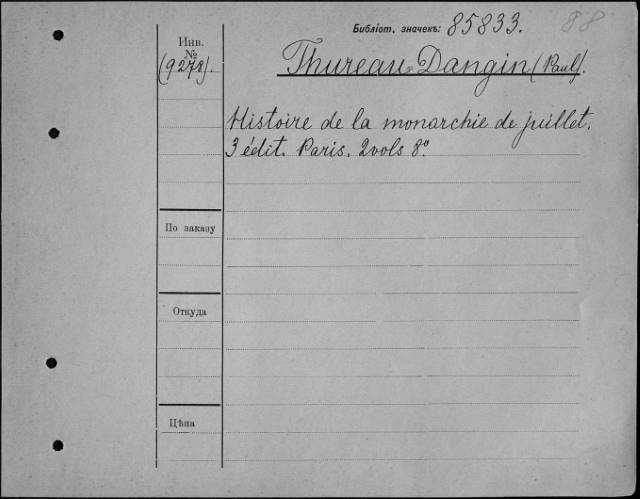 Библіот. значекъ: 85833. 88
Инв.
№
Thureau-Dangin (Paul).
Histoire de la monarchie de juillet.
3 édit. Paris. 2 vols 8°.
По заказу
Откуда
Цѣна